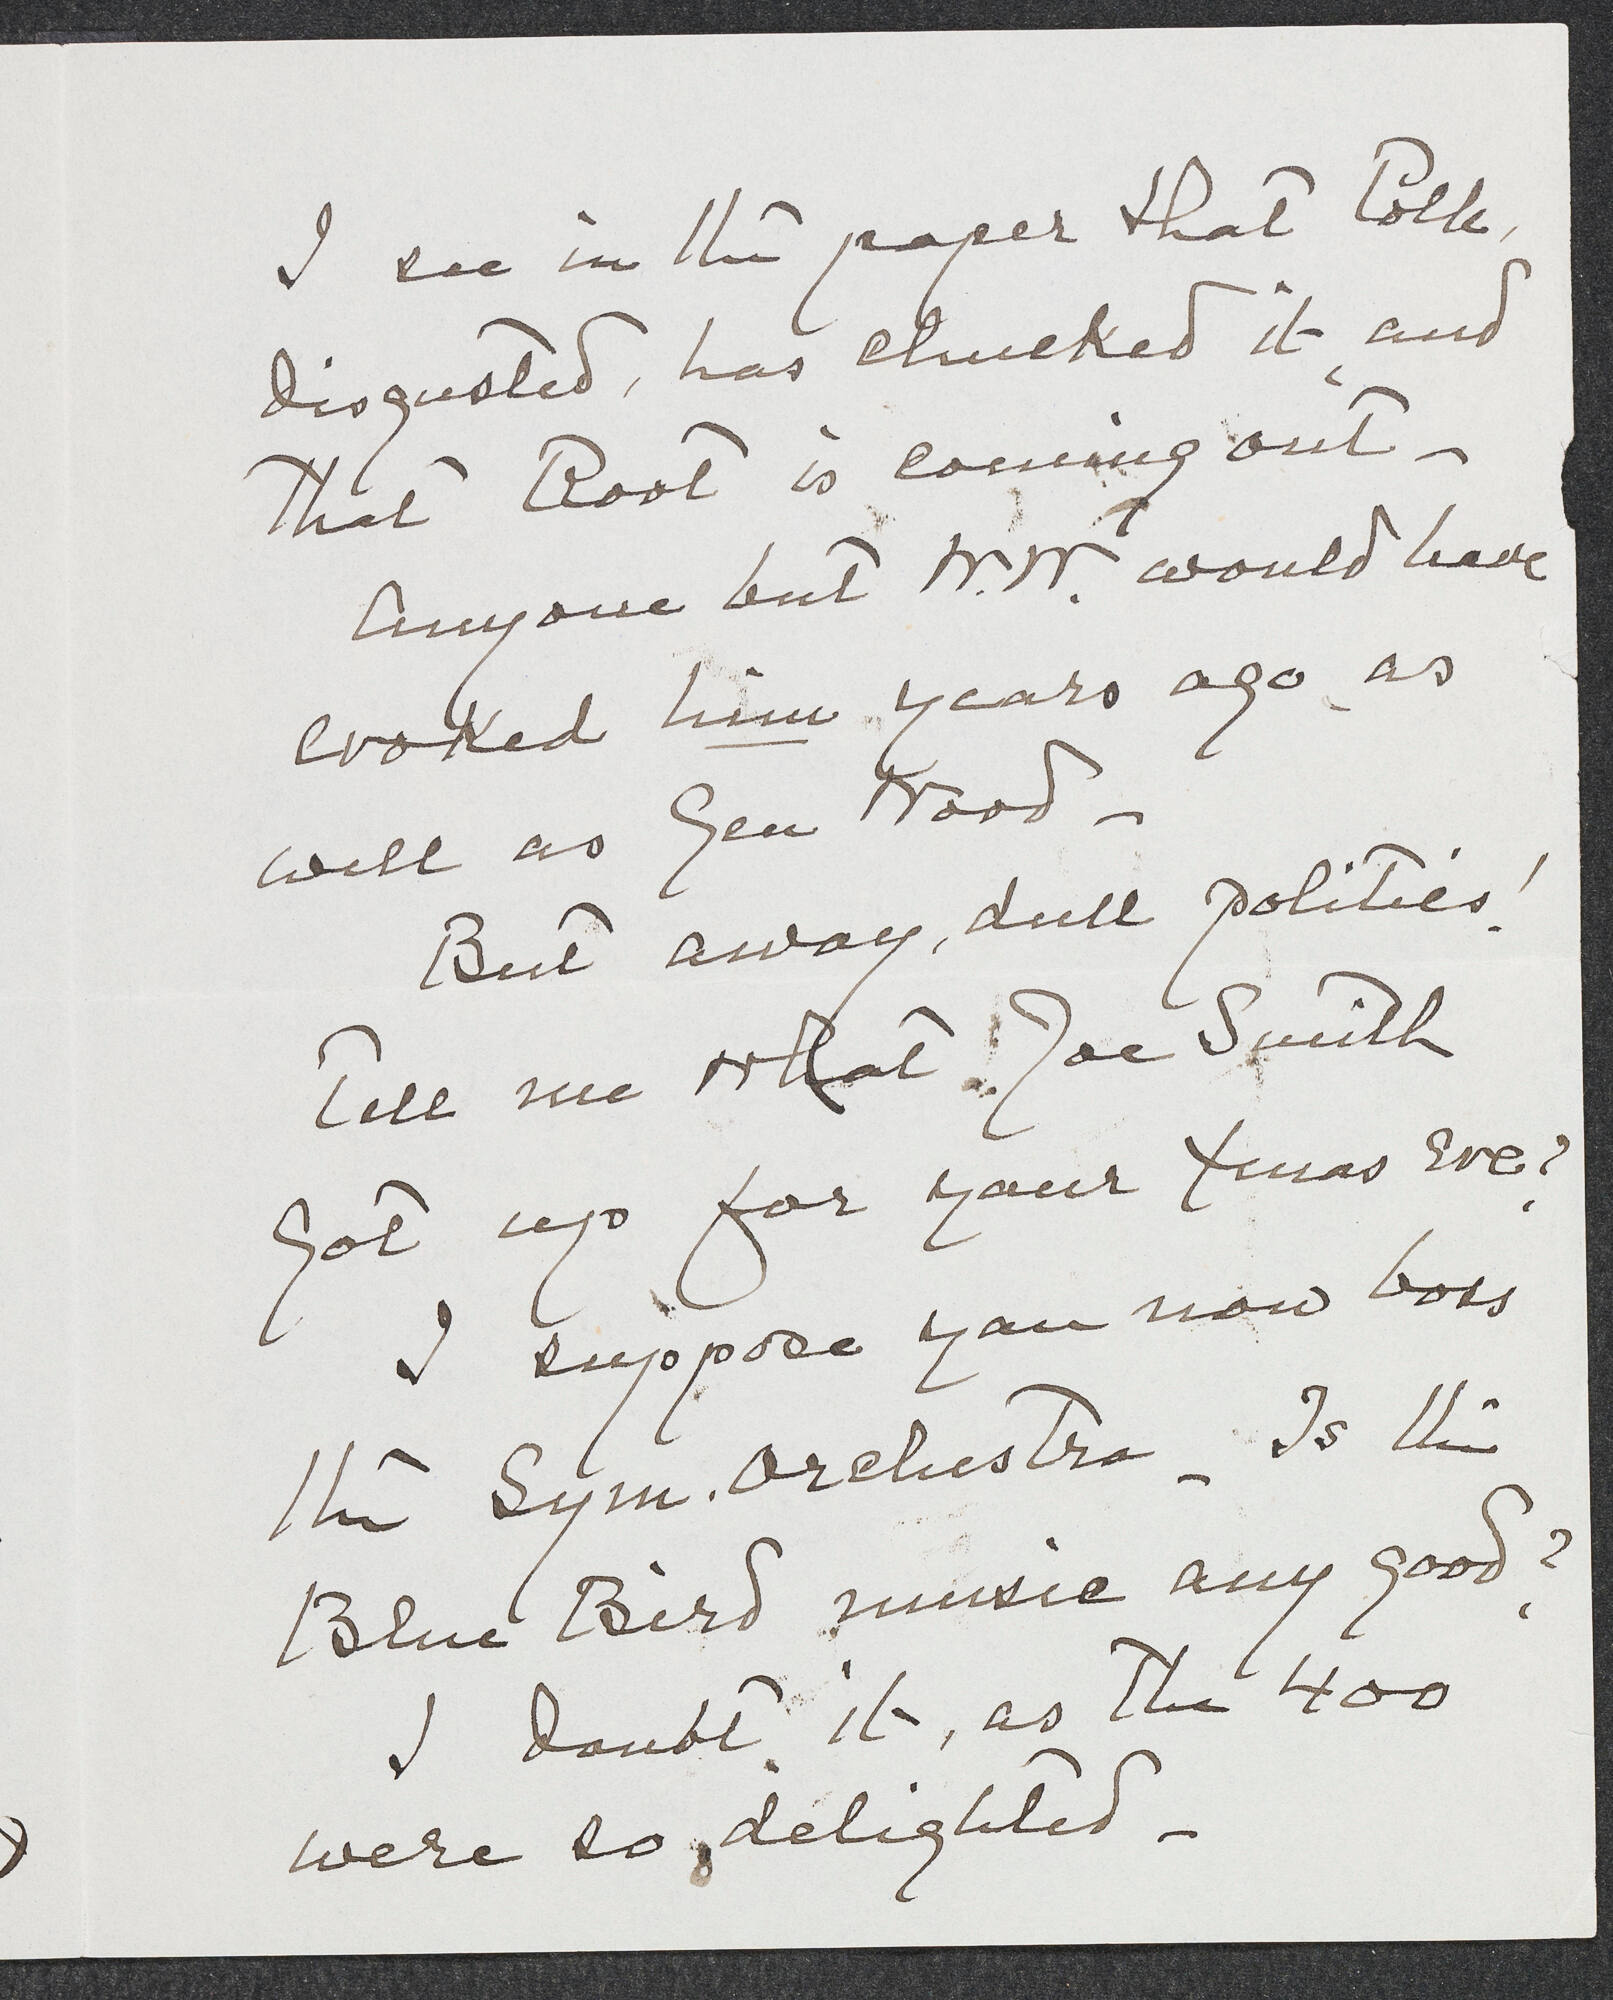 I see in the paper that Polk,
disgusted, has chucked it, and
that Root is coming out –
Anyone but W.W. would have
evoked him years ago, as
well as Gen Wood –
But away, dull politics!
Tell me what Joe Smith
got up for your Xmas Eve?
I suppose you now boss
the Sym. Orchestra – Is the
Blue Bird music any good?
I doubt it, as the 400
were so delighted –